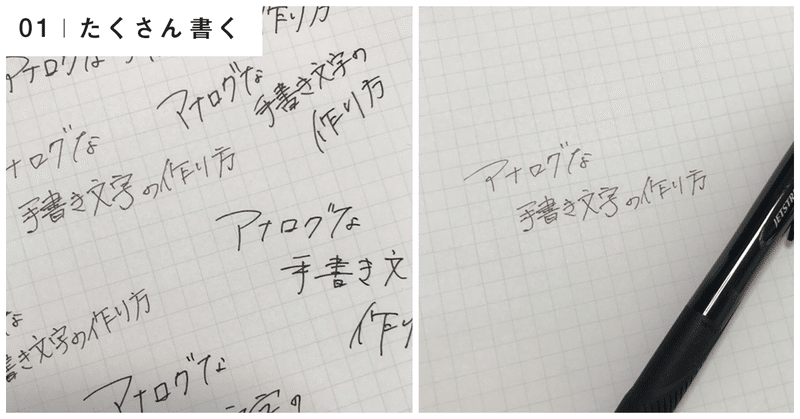 01 | たくさん書く
作り方
アナログな
アナログな
手書き文字の
作り方
ナログな
手書き文字の作り方
アナログな
手書き文
作り
な
書き文字の作り方
アナログな
字の
アナログな
手書き文字の作り方
JETSTR